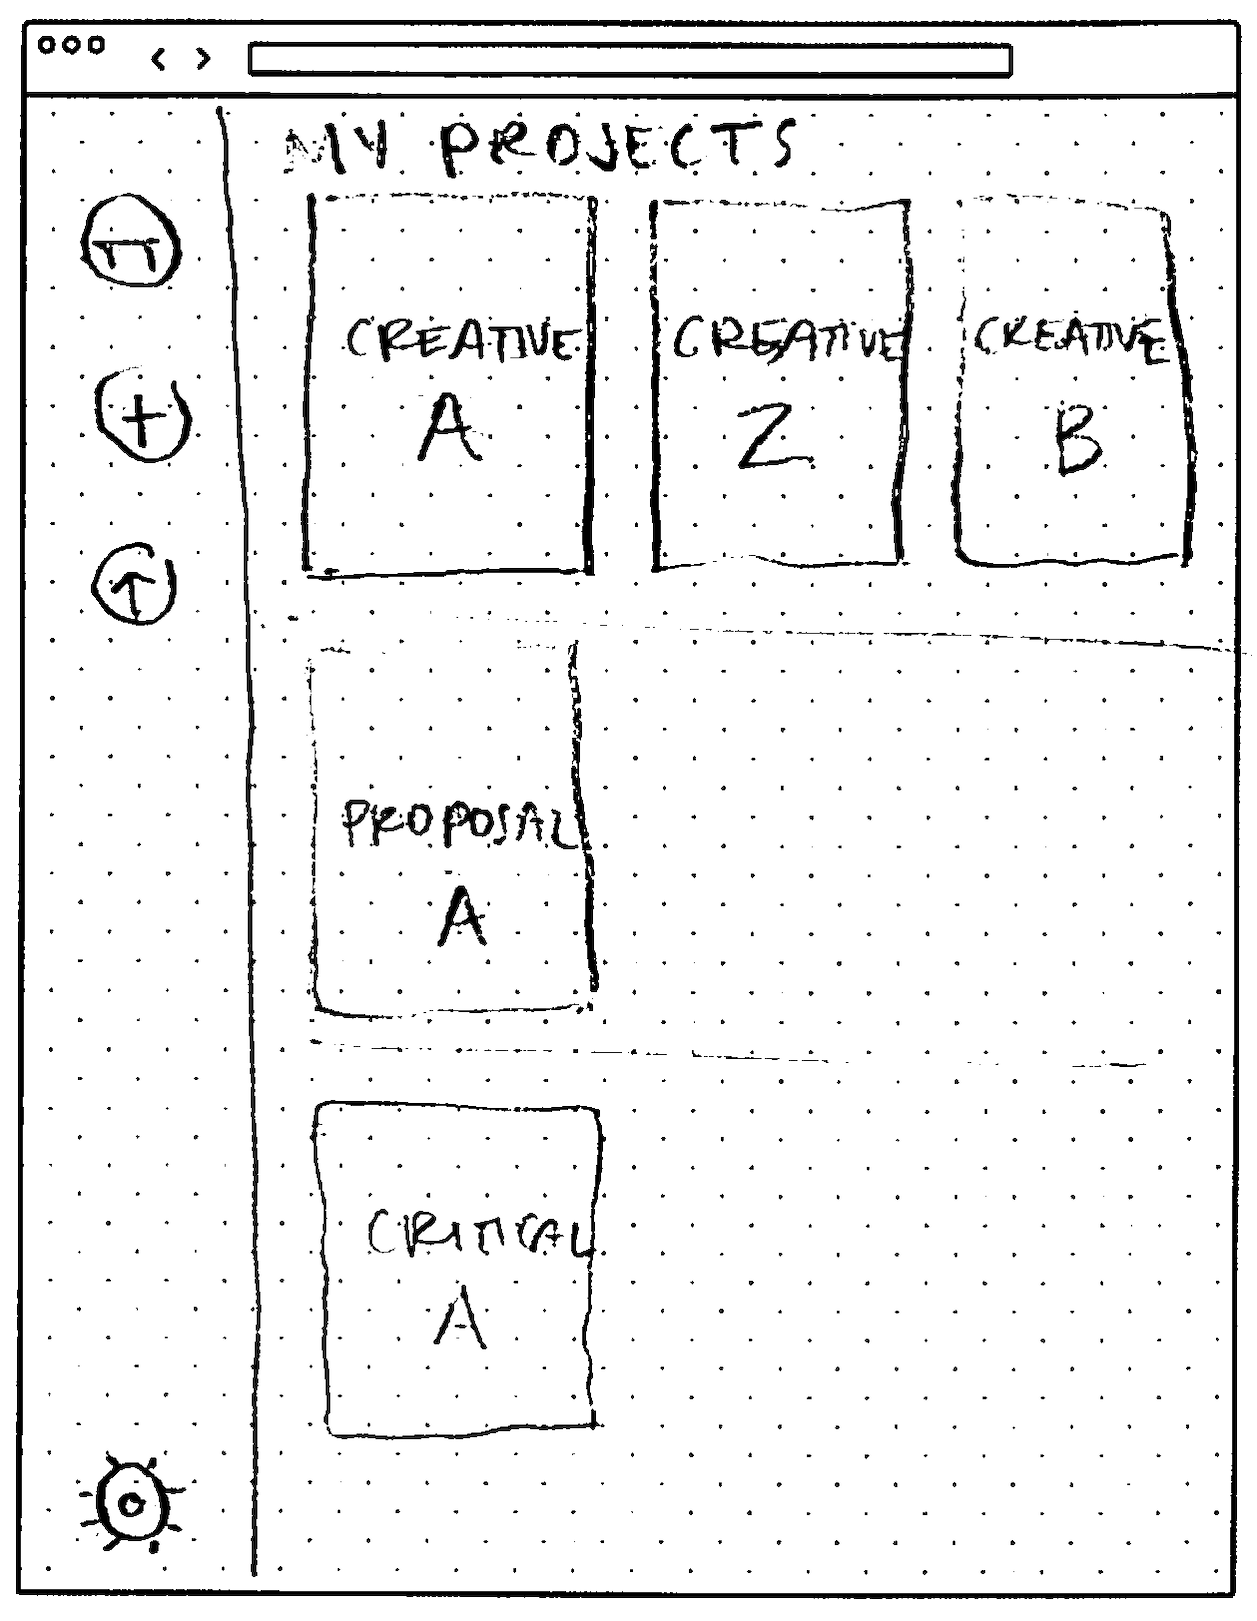 MY PROJECTS
CREATIVE
A
CREATIVE
Z
CREATIVE
B
PROPOSAL
A
CRITICAL
A